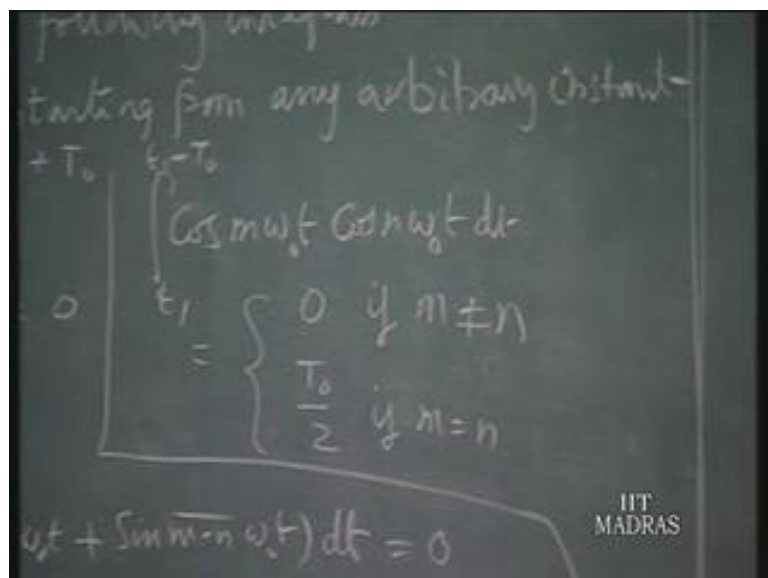 following integrals
starting from any arbitrary instant
+ T₀
t₁+T₀
∫ Cos mω₀t Cos nω₀t dt
t₁
= 0
= { 0 if m ≠ n
T₀/2 if m = n
ω₀t + Sin m-n ω₀t) dt = 0
IIT
MADRAS